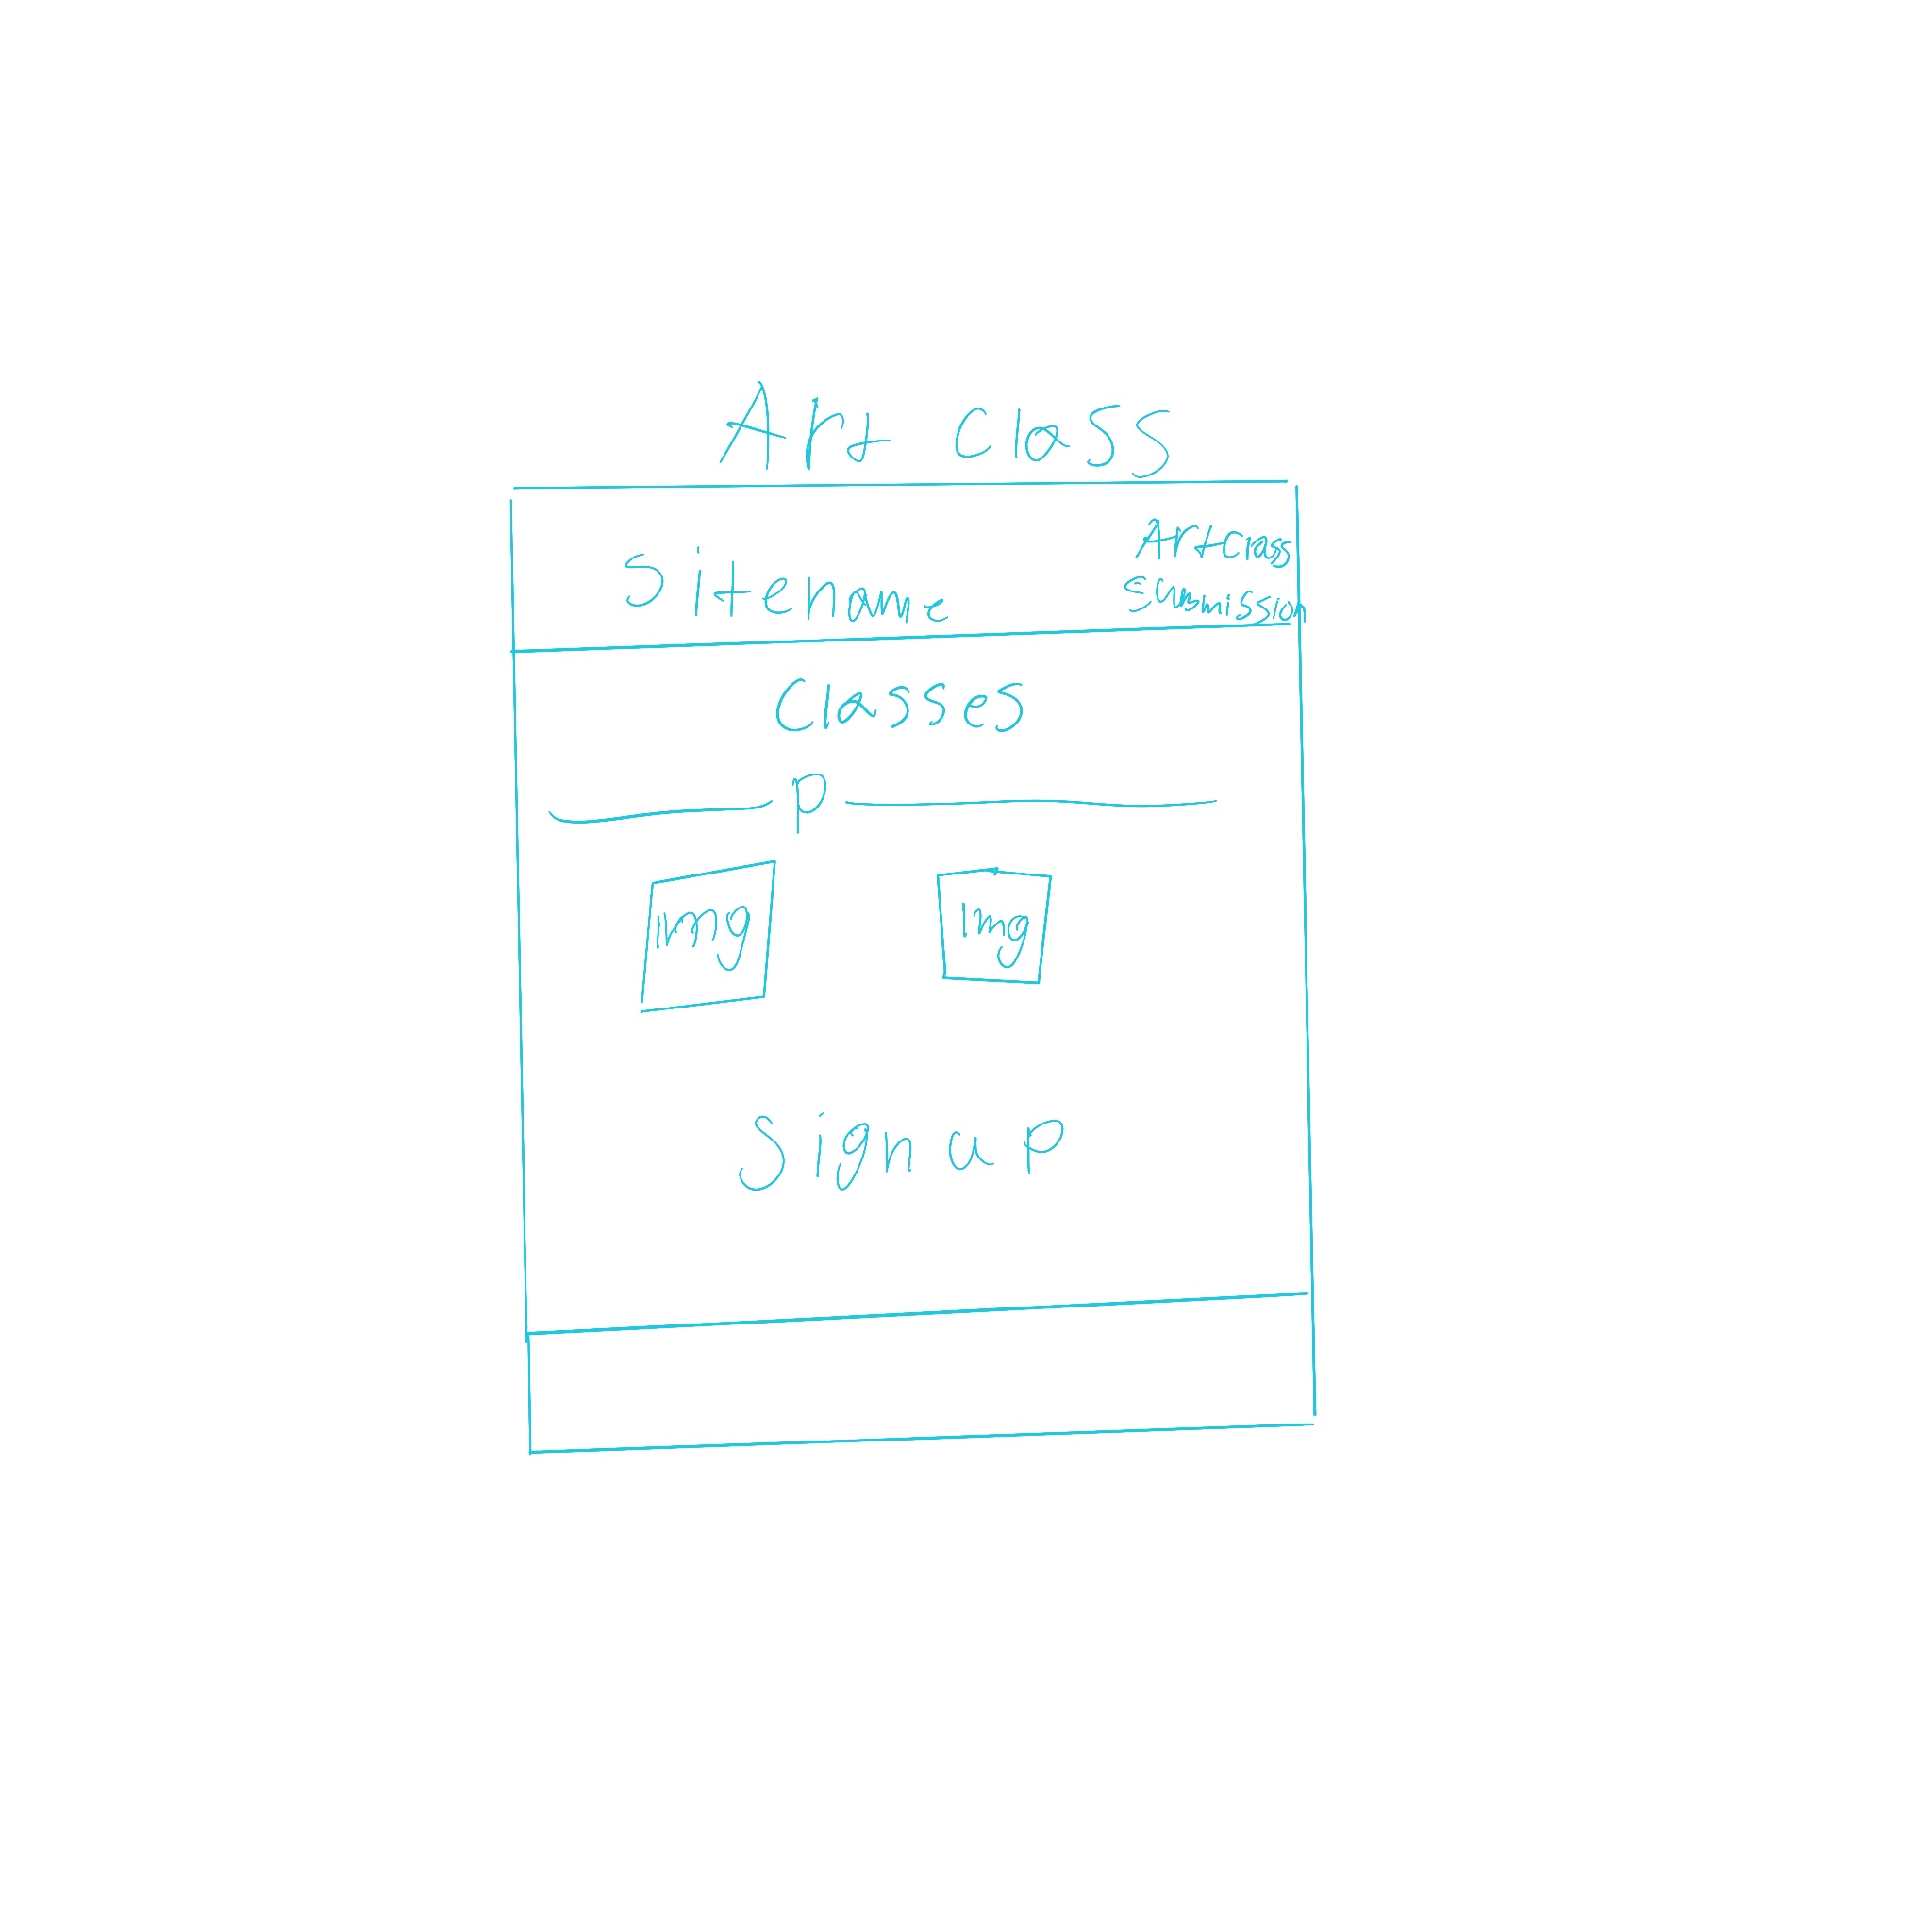 Art Class
Sitename
Artclass
summission
Classes
P
img
img
Sign up